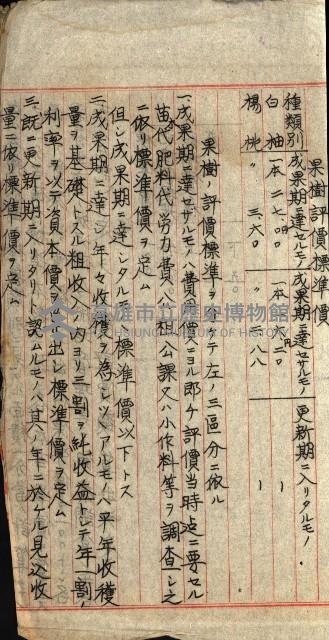 果樹評價標準價
種類別 成果期ニ達セルモノ 成果期ニ達セザルモノ 更新期ニ入リタルモノ
白柚 一本 二七、〇〇 一本 二〇 ー
楊桃 〃 三、六〇 〃 三八八 ー
果樹ノ評價標準ヲ テ左ノ三區分ニ依ル
一、成果期ニ達セザルモノハ費用價ニヨル即チ評價當時迠ニ要セル
苗代肥料代勞力費ハ租公課又ハ小作料等ヲ調査シ之
ニ依リ標準價ヲ定ム
但シ成果期ニ達シタルモノノ標準價以下トス
二、成果期ニ達シ年々收獲ヲ為シツヽアルモノハ平年收穫
量ヲ基礎トスル粗收入ノ内ヨリ三割ヲ純收益トシテ年一割ノ
利率ヲ以テ資本價ヲ 出シ標準價ヲ定ム
三、既ニ更新期ニ入リタリト認ムルモノハ其ノ年ニ於ケル見込收
量ニ依リ標準價ヲ定ム
高雄市立歷史博物館
KAOHSIUNG MUSEUM OF HISTORY